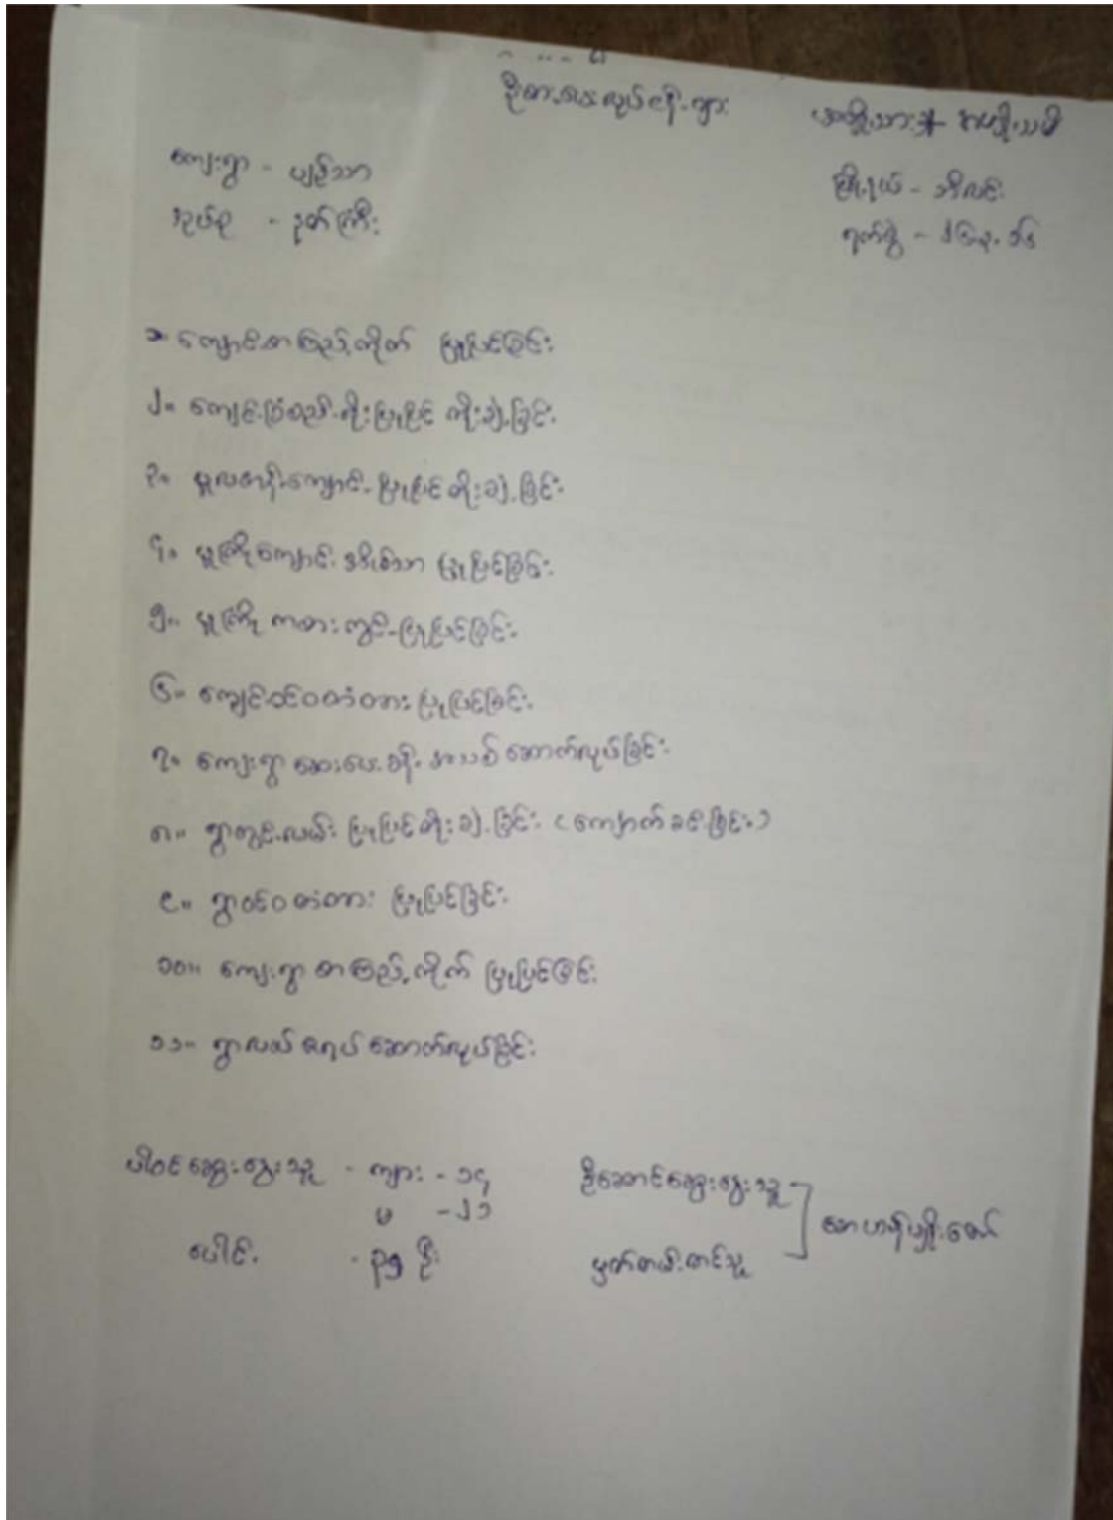 ဦးစားပေးလုပ်ငန်းများ အမျိုးသမီး
ကျေးရွာ - ပျဉ်သာ မြို့နယ် - ဘီလင်း
အုပ်စု - ရက်စွဲ -
၁။ ကျောင်းစာကြည့်တိုက် ပြုပြင်ခြင်း
၂။ ကျောင်းခြံစည်းရိုးပြုပြင် တိုးချဲ့ခြင်း
၃။ မူလတန်းကျောင်း ပြုပြင်တိုးချဲ့ခြင်း
၄။ မူကြိုကျောင်း အိမ်သာ ပြုပြင်ခြင်း
၅။ မူကြို ကစားကွင်း ပြုပြင်ခြင်း
၆။ ကျောင်းဝင်ဝတံတား ပြုပြင်ခြင်း
၇။ ကျေးရွာ ဆေးပေးခန်း အသစ် ဆောက်လုပ်ခြင်း
၈။ ရွာတွင်းလမ်း ပြုပြင်တိုးချဲ့ခြင်း (ကျောက်ခင်းခြင်း)
၉။ ရွာဝင်ဝတံတား ပြုပြင်ခြင်း
၁၀။ ကျေးရွာ စာကြည့်တိုက် ပြုပြင်ခြင်း
၁၁။ ရွာလယ် ဇရပ် ဆောက်လုပ်ခြင်း
ပါဝင်ဆွေးနွေးသူ - ကျား - ၁၄ ဦးဆောင်ဆွေးနွေးသူ
မ - ၂၁
ပေါင်း - ၃၅ ဦး မှတ်တမ်းတင်သူ